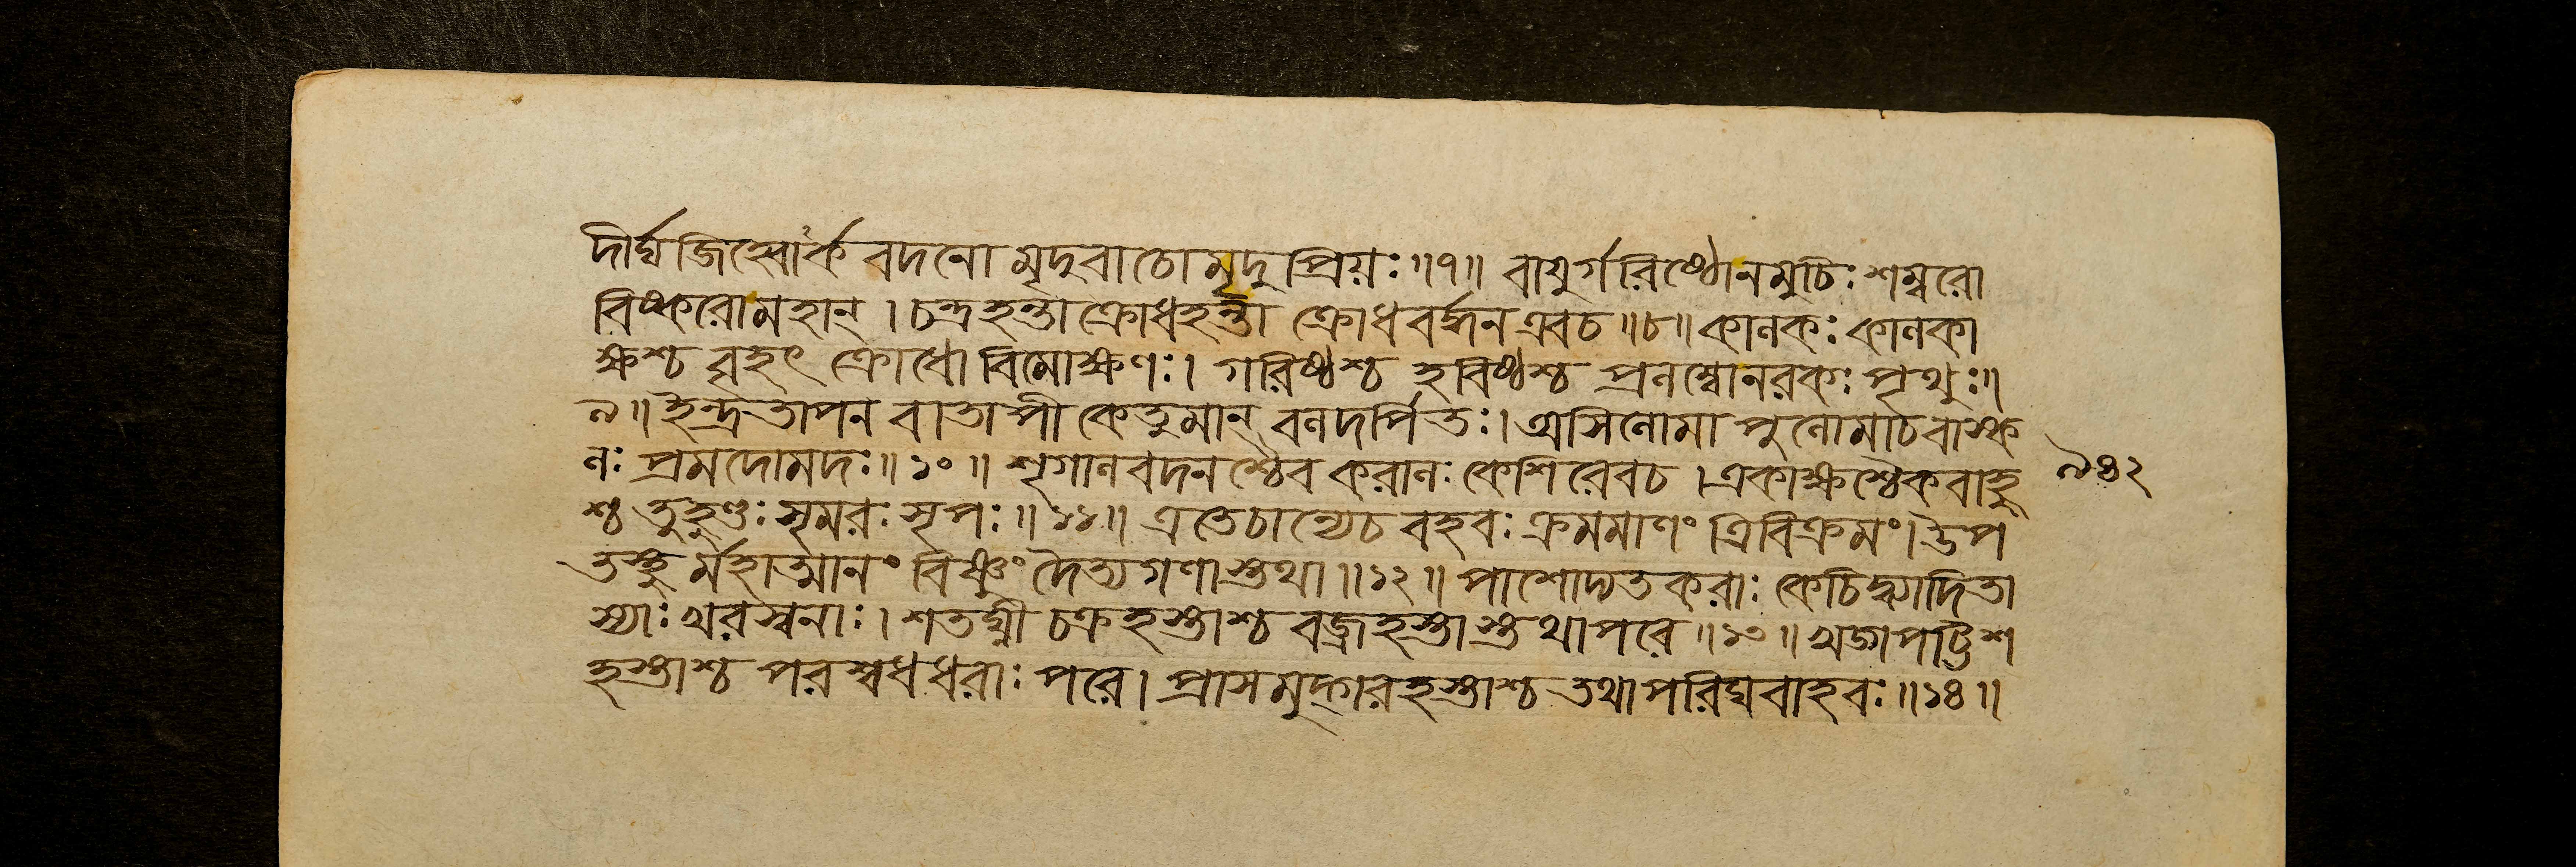 দীর্ঘজিহ্বোর্কবদনো মৃদুবাচো মৃদুপ্রিয়ঃ॥৭॥ বায়ুর্গরিষ্ঠোনমুচিঃ শম্বরো
বিষ্করোমহান্। চন্দ্রহন্তা ক্রোধহন্তা ক্রোধবর্দ্ধন এবচ॥৮॥ কালকঃ কালকা
ক্ষশ্চ বৃহৎ ক্রোধো বিমোক্ষণঃ। গরিষ্ঠশ্চ হবিষ্ঠশ্চ প্রলম্বোনরকঃ পৃথুঃ॥
৯॥ ইন্দ্রতাপন বাতাপী কেতুমান্ বলদর্পিতঃ। অসিলোমা পুলোমাচবাস্ক
লঃ প্রমদোমদঃ॥১০॥ শৃগালবদনশ্চৈব করালঃ কেশিরেবচ। একাক্ষশ্চৈকবাহু
শ্চ তুহুণ্ডঃ সৃমরঃ সৃপঃ॥১১॥ এতেচান্যেচ বহবঃ ক্রমমাণং ত্রিবিক্রমং। উপ
তস্থুর্মহাত্মানং বিষ্ণুং দৈত্যগণাস্তথা॥১২॥ পাশোদ্যতকরাঃ কেচিদ্ব্যাদিতা
স্যাঃ খরস্বনাঃ। শতঘ্নী চক্রহস্তাশ্চ বজ্রহস্তাস্তথাপরে॥১৩॥ খড়্গপট্টিশ
হস্তাশ্চ পরশ্বধধরাঃ পরে। প্রাসমুদ্গরহস্তাশ্চ তথাপরিঘবাহবঃ॥১৪॥